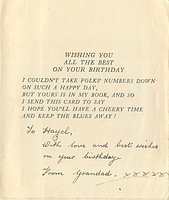 WISHING YOU
ALL THE BEST
ON YOUR BIRTHDAY
I COULDN'T TAKE FOLKS' NUMBERS DOWN
ON SUCH A HAPPY DAY,
BUT YOURS IS IN MY BOOK, AND SO
I SEND THIS CARD TO SAY
I HOPE YOU'LL HAVE A CHEERY TIME
AND KEEP THE BLUES AWAY!
To Hazel,
With love and best wishes
on your birthday
From Grandad. xxxxx